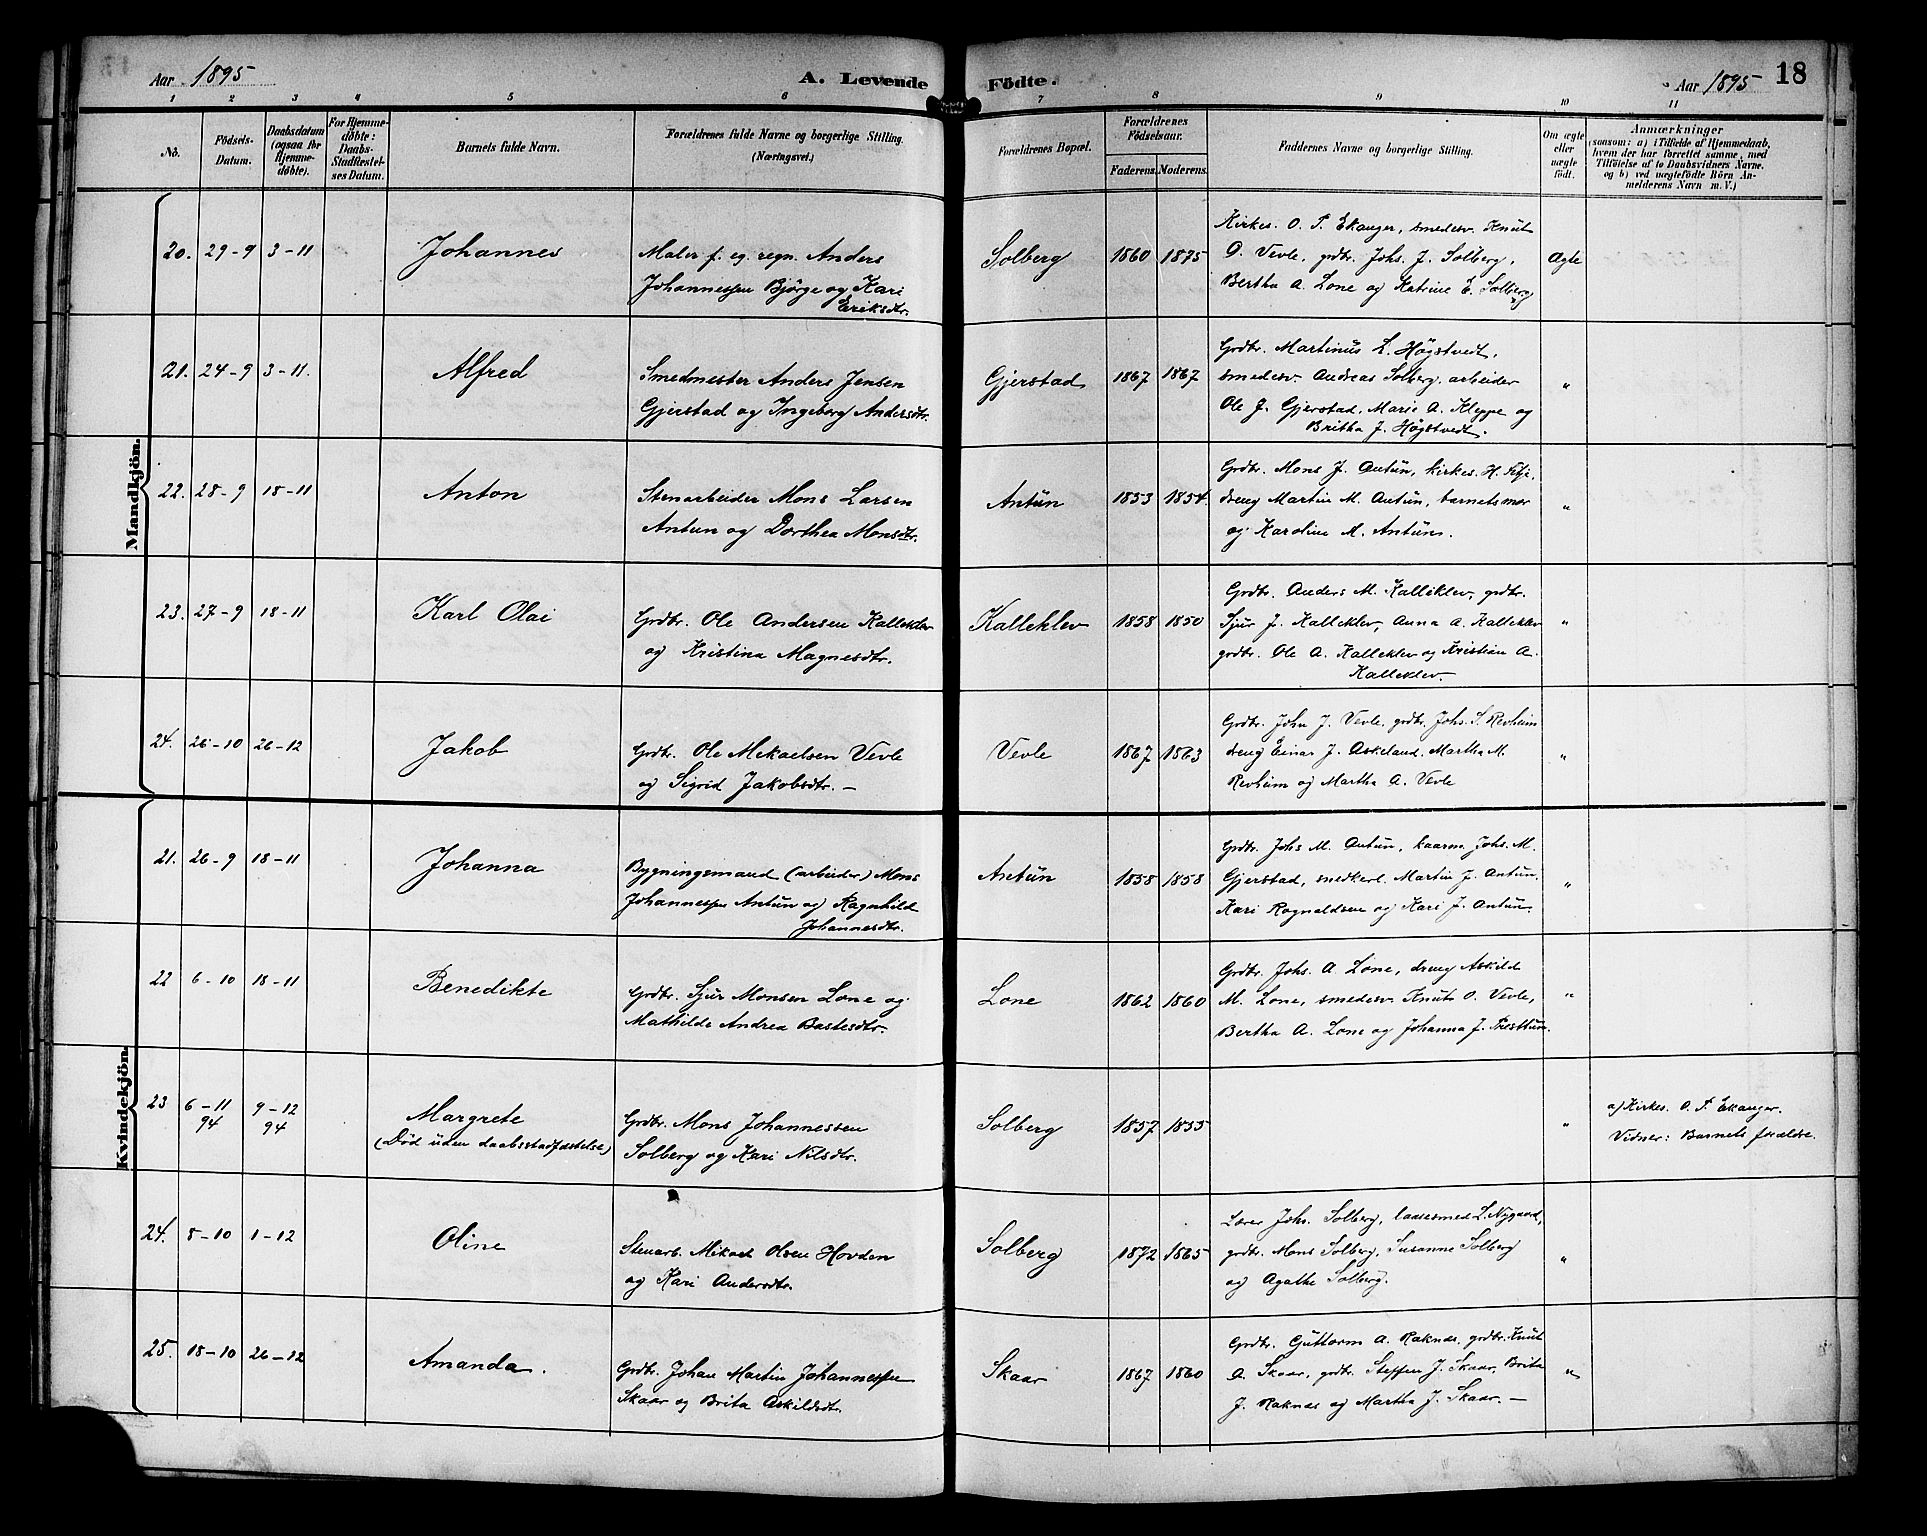 Aar 1895
A. Levende Födte.
Aar 1895
18
1 2 3 4 5 6 7 8 9 10 11
No.
Födsels-
Datum.
Daabsdatum
(ogsaa for
Hjemme-
døbte).
For Hjemme-
døbte:
Daabs-
Stadfæstel-
ses Datum.
Barnets fulde Navn.
Forældrenes fulde Navne og borgerlige Stilling.
(Næringsvei.)
Forældrenes Bopæl.
Forældrenes
Födselsaar.
Faderens. Moderens.
Faddernes Navne og borgerlige Stilling.
Om ægte
eller
uægte
födt.
Anmærkninger
(saasom: a) i Tilfælde af Hjemmedaab,
hvem der har forrettet samme, med
Tilföielse af to Daabsvidners Navne.
og b) ved uægtefödte Börn An-
melderens Navn m. V.)
Mandkjön.
20. 29-9 3-11 Johannes
Maler f. eg. regn. Anders
Johannessen Bjørge og Kari
Eriksdtr.
Solberg 1860 1875
Kirkes. O. T. Ekanger, smedesv. Knut
O. Vevle, grdbr. Johs. J. Solberg,
Bertha A. Lone og Katrine E. Solberg
Ægte
21. 24-9 3-11. Alfred
Smedmester Anders Jensen
Gjerstad og Ingeborg Andersdtr.
Gjerstad 1867 1867
Grdbr. Martinus L. Høgstvedt,
smedesv. Andreas Solberg, arbeider
Ole J. Gjerstad, Marie A. Kleppe og
Britha J. Høgstvedt.
"
22. 28-9 18-11 Anton
Stenarbeider Mons Larsen
Antun og Dorthea Monsdtr.
Antun 1853 1854.
Grdbr. Mons J. Antun, kirkes. H.
dreng Martin M. Antun, barnets mor
og Karoline M. Antun.
"
23. 27-9 18-11 Karl Olai
Grdbr. Ole Andersen Kalleklev
og Kristina Magnesdtr.
Kalleklev 1858 1850
Grdbr. Anders M. Kalleklev, grdbr.
Sjur J. Kalleklev, Anna A. Kalleklev
grdbr. Ole A. Kalleklev og Kristian A.
Kalleklev.
"
24. 26-10 26-12 Jakob
Grdbr. Ole Mekaelsen Vevle
og Sigrid Jakobsdtr. —
Vevle 1867 1863
Grdbr. John J. Vevle, grdbr. Johs. S. Revheim
dreng Einar J. Askeland, Martha M.
Revheim og Martha A. Vevle
"
Kvindekjön.
21. 26-9 18-11 Johanna
Bygningsmand (arbeider) Mons
Johannessen Antun og Ragnhild
Johannesdtr.
Antun 1858 1858
Grdbr. Johs M. Antun, kaarm. Johs. M.
Gjerstad, smedkarl. Martin J. Antun.
Kari Ragnaldsen og Kari J. Antun.
"
22 6-10 18-11 Benedikte
Grdbr. Sjur Monsen Lone og
Mathilde Andrea Bastesdtr.
Lone 1862 1860
Grdbr. Johs. A. Lone, dreng Askild
M. Lone, smedesv. Knut O. Vevle,
Bertha A. Lone og Johanna J. Presttun.
"
23 6-11 94 9-12 94 Margrete
(Död uden daabsstadfæstelse)
Grdbr. Mons Johannessen
Solberg og Kari Nilsdtr.
Solberg 1857 1855
"
a) Kirkes. O. T. Ekanger.
Vidner: Barnets forældre.
24. 5-10 1-12 Oline
Stenarb. Mikael Olsen Hovden
og Kari Andersdtr.
Solberg 1872 1865
Lærer Johs. Solberg, laasesmed L. Nygaard,
grdbr. Mons Solberg, Susanne Solberg
og Agathe Solberg.
"
25. 18-10 26-12 Amanda.
Grdbr. Johan Martin Johannessen
Skaar og Brita Askildsdtr.
Skaar 1867 1860
Grdbr. Guttorm A. Raknæs, grdbr. Knut
A. Skaar, grdbr. Steffen J. Skaar, Brita
J. Raknæs og Martha J. Skaar. —
"